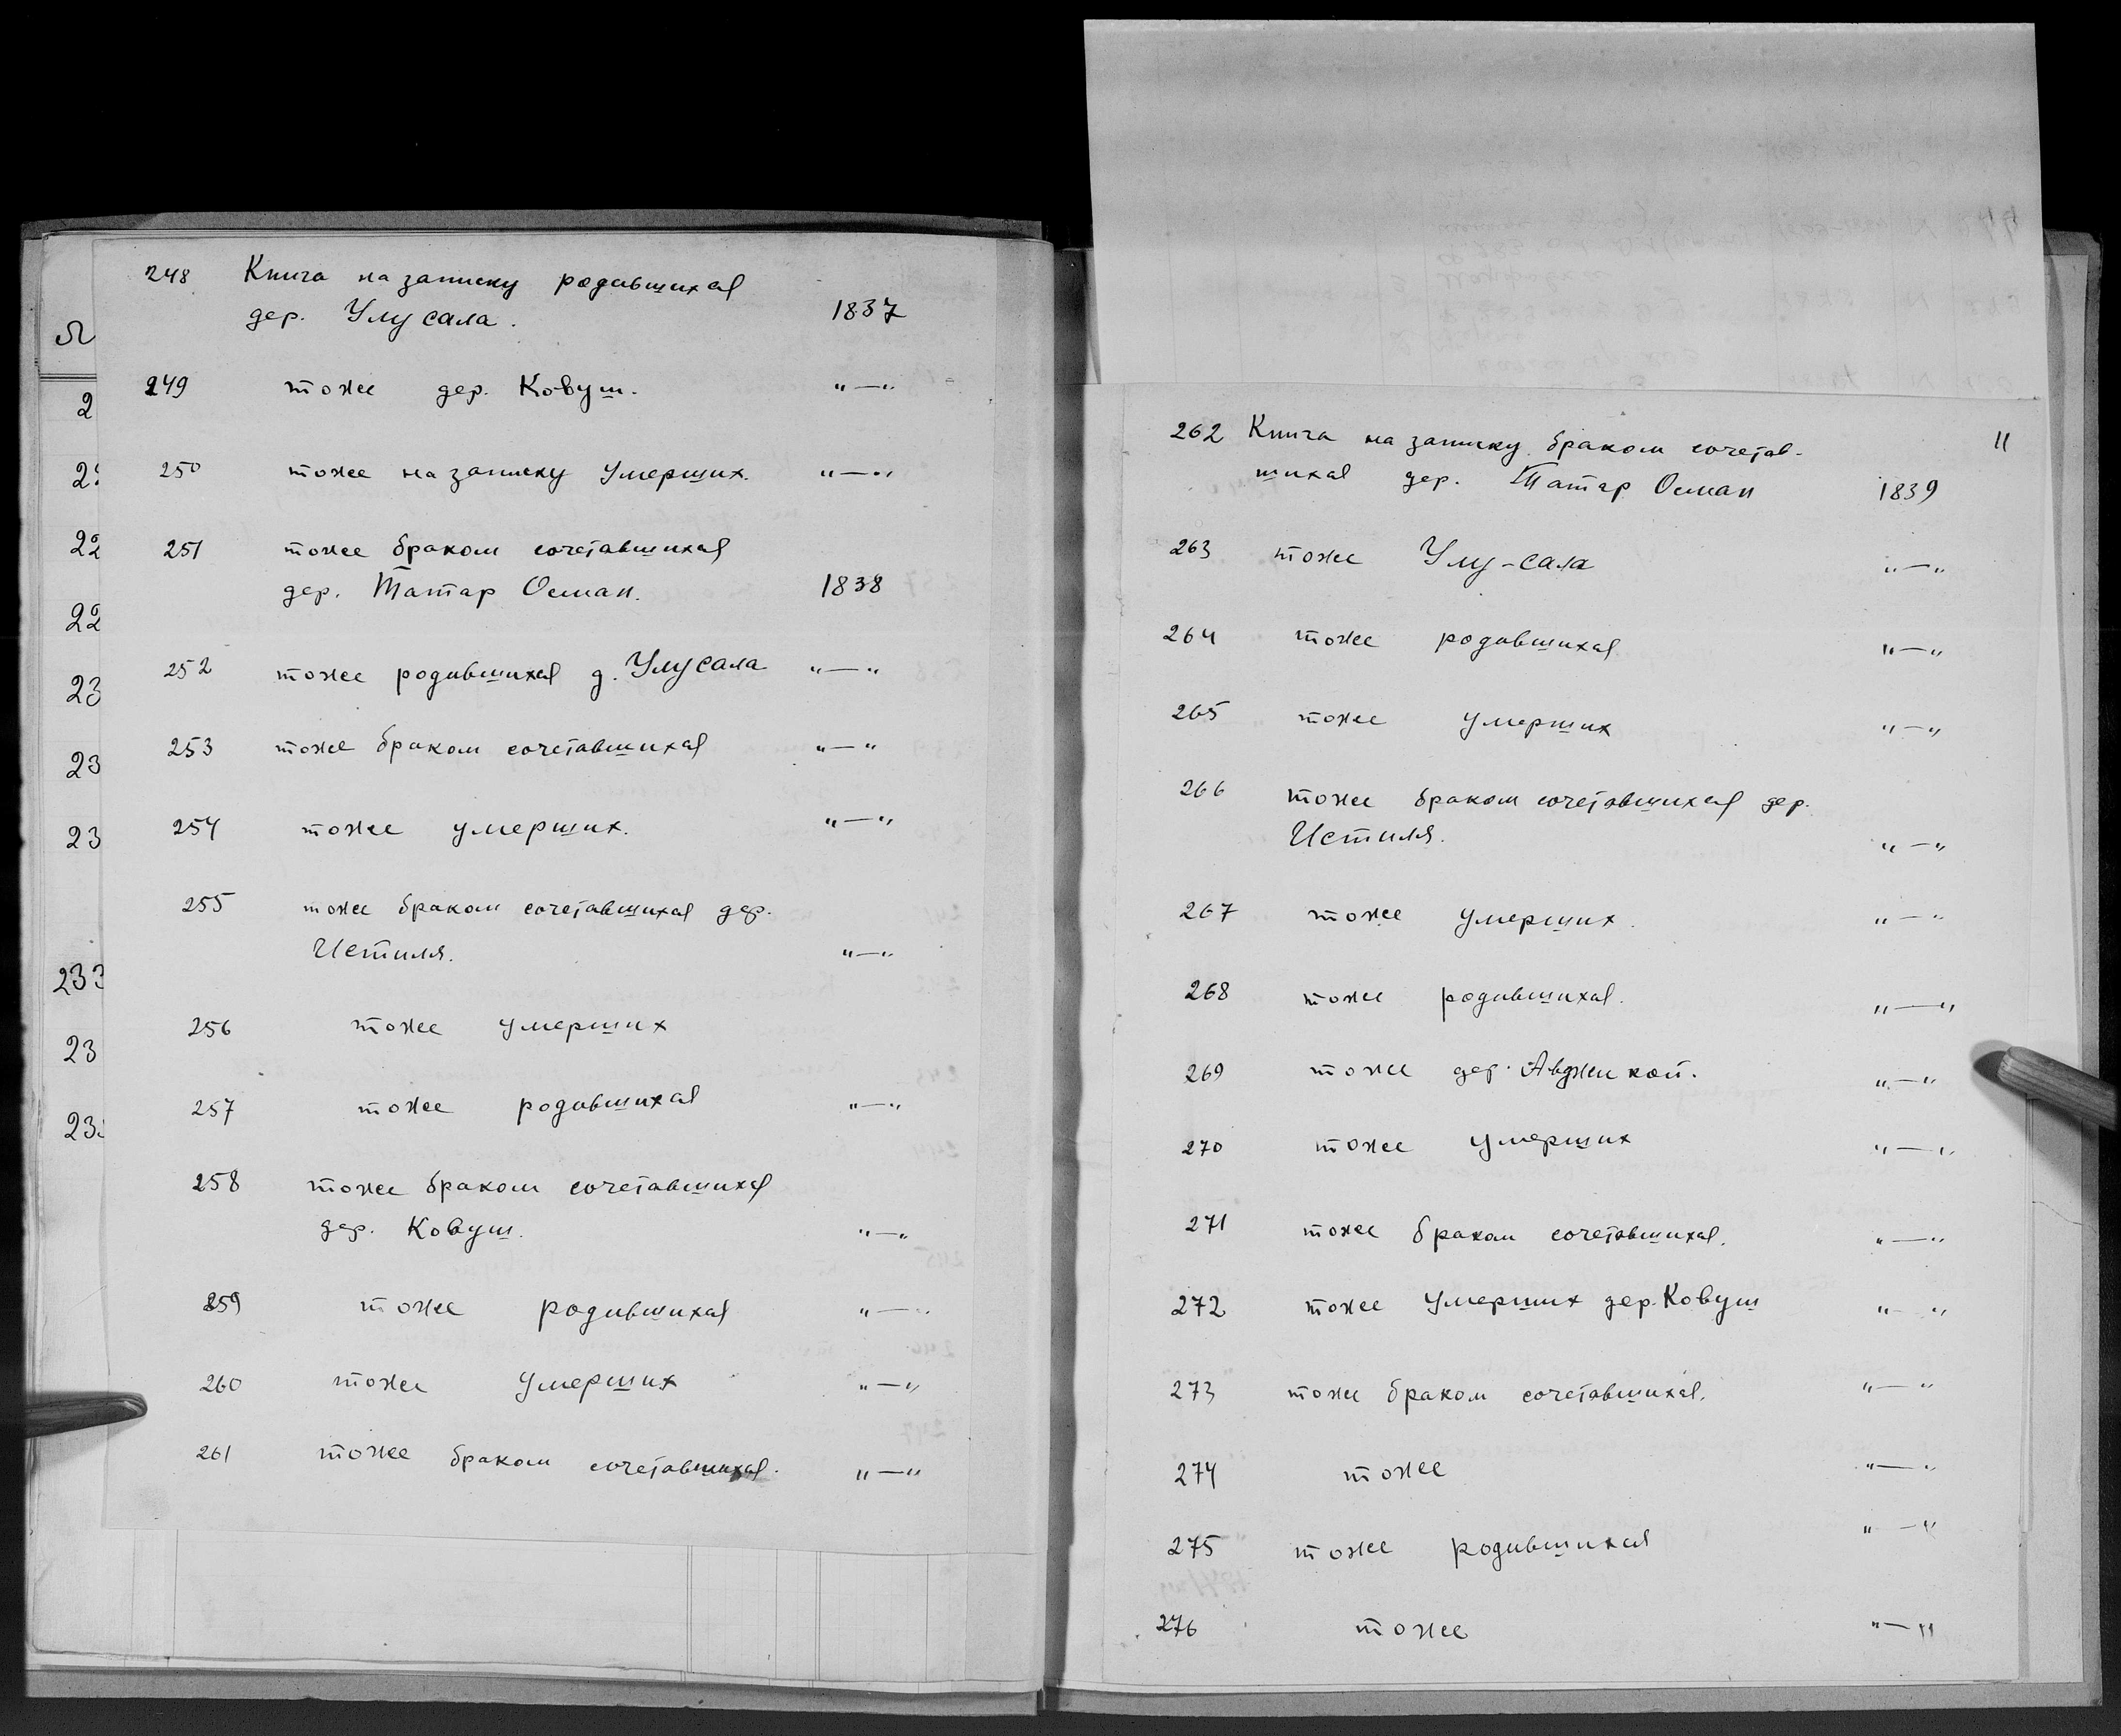 248 Книга на записку родившихся
дер. Улусала. 1837
249 тоже дер. Ковуш. "—"
250 тоже на записку умерших. "—"
251 тоже браком сочетавшихся
дер. Татар Осман. 1838
252 тоже родившихся д. Улусала "—"
253 тоже браком сочетавшихся "—"
254 тоже умерших. "—"
255 тоже браком сочетавшихся дер.
Истиля. "—"
256 тоже умерших
257 тоже родившихся "—"
258 тоже браком сочетавшихся
дер. Ковуш. "—"
259 тоже родившихся "—"
260 тоже умерших "—"
261 тоже браком сочетавшихся. "—"
11
262 Книга на записку браком сочетав-
шихся дер. Татар Осман 1839
263 тоже Улу-сала "—"
264 тоже родившихся "—"
265 тоже умерших "—"
266 тоже браком сочетавшихся дер.
Истиля. "—"
267 тоже умерших. "—"
268 тоже родившихся. "—"
269 тоже дер. Авджи кой. "—"
270 тоже умерших "—"
271 тоже браком сочетавшихся. "—"
272 тоже умерших дер. Ковуш "—"
273 тоже браком сочетавшихся. "—"
274 тоже "—"
275 тоже родившихся "—"
276 тоже "—"